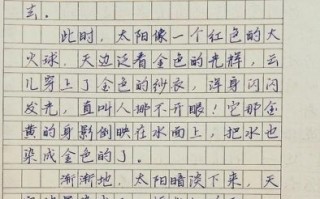 去。
此时，太阳像一个红色的大
火球，天边泛着金色的光辉，云
儿穿上了金色的纱衣，浑身闪闪
发光，直叫人挪不开眼！它那金
黄的身影倒映在水面上，把水也
染成金色的了。
渐渐地，太阳暗淡下来，天